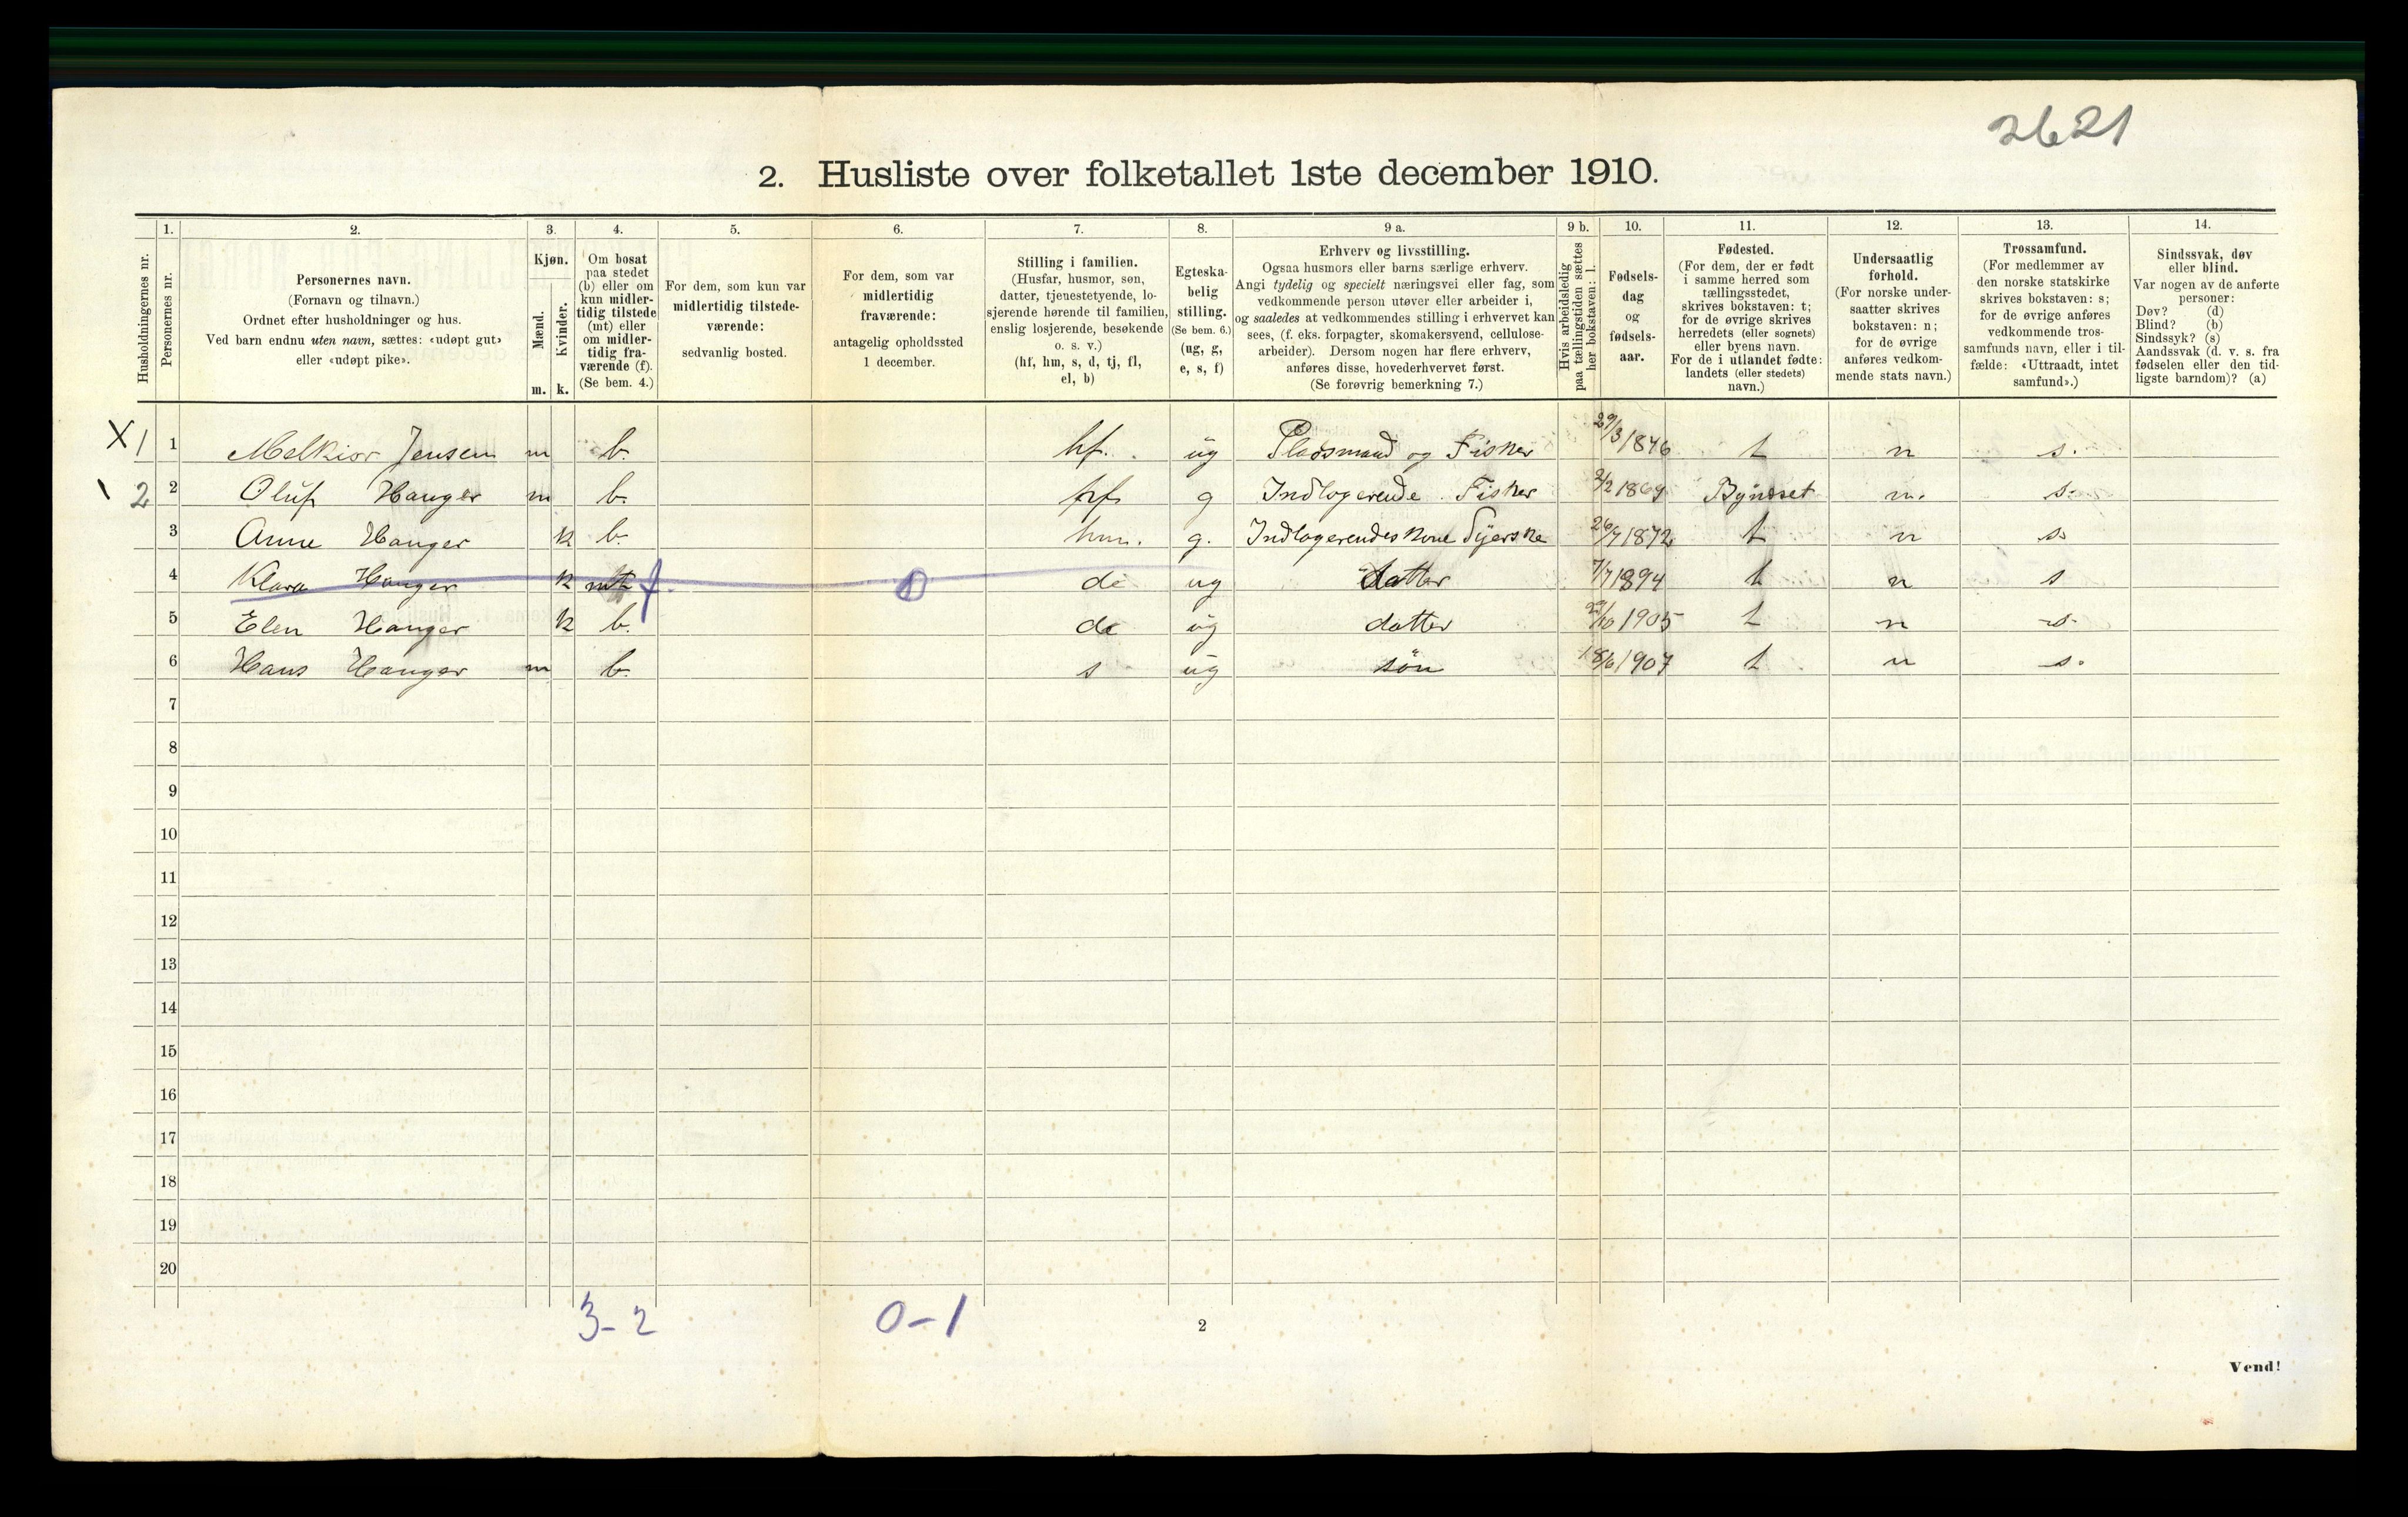 2621
2. Husliste over folketallet 1ste december 1910.
Husholdningernes nr.
1.
Personernes nr.
2.
Personernes navn.
(Fornavn og tilnavn.)
Ordnet efter husholdninger og hus.
Ved barn endnu uten navn, sættes: «udøpt gut»
eller «udøpt pike».
3.
Kjøn.
Mænd.
m.
Kvinder.
k.
4.
Om bosat
paa stedet
(b) eller om
kun midler-
tidig tilstede
(mt) eller
om midler-
tidig fra-
værende (f).
(Se bem. 4.)
5.
For dem, som kun var
midlertidig tilstede-
værende:
sedvanlig bosted.
6.
For dem, som var
midlertidig
fraværende:
antagelig opholdssted
1 december.
7.
Stilling i familien.
(Husfar, husmor, søn,
datter, tjenestetyende, lo-
sjerende hørende til familien,
enslig losjerende, besøkende
o. s. v.)
(hf, hm, s, d, tj, fl,
el, b)
8.
Egteska-
belig
stilling.
(Se bem. 6.)
(ug, g,
e, s, f)
9 a.
Erhverv og livsstilling.
Ogsaa husmors eller barns særlige erhverv.
Angi tydelig og specielt næringsvei eller fag, som
vedkommende person utøver eller arbeider i,
og saaledes at vedkommendes stilling i erhvervet kan
sees, (f. eks. forpagter, skomakersvend, cellulose-
arbeider). Dersom nogen har flere erhverv,
anføres disse, hovederhvervet først.
(Se forøvrig bemerkning 7.)
9 b.
Hvis arbeidsledig
paa tællingstiden sættes
her bokstaven: l.
10.
Fødsels-
dag
og
fødsels-
aar.
11.
Fødested.
(For dem, der er født
i samme herred som
tællingsstedet,
skrives bokstaven: t;
for de øvrige skrives
herredets (eller sognets)
eller byens navn.
For de i utlandet fødte:
landets (eller stedets)
navn.)
12.
Undersaatlig
forhold.
(For norske under-
saatter skrives
bokstaven: n;
for de øvrige
anføres vedkom-
mende stats navn.)
13.
Trossamfund.
(For medlemmer av
den norske statskirke
skrives bokstaven: s;
for de øvrige anføres
vedkommende tros-
samfunds navn, eller i til-
fælde: «Uttraadt, intet
samfund».)
14.
Sindssvak, døv
eller blind.
Var nogen av de anførte
personer:
Døv? (d)
Blind? (b)
Sindssyk? (s)
Aandssvak (d. v. s. fra
fødselen eller den tid-
ligste barndom)? (a)
X 1 1 Melkior Jensen m b. hf. ug Pladsmand og Fisker 29/3 1846 t n s.
2 2 Oluf Hanger m b. hf g Indlogerende Fisker 2/2 1869 Bynesset n. s.
3 Anne Hanger k b. hm. g. Indlogerendes kone Syerske 26/7 1872 t n s.
4 Klara Hanger k mt f. 0 d ug datter 7/7 1894 t n s
5 Elen Hanger k b. d ug datter 29/10 1905 t n s.
6 Hans Hanger m b. s ug søn 18/6 1907 t n s.
7
8
9
10
11
12
13
14
15
16
17
18
19
20
3-2 0-1
2
Vend!